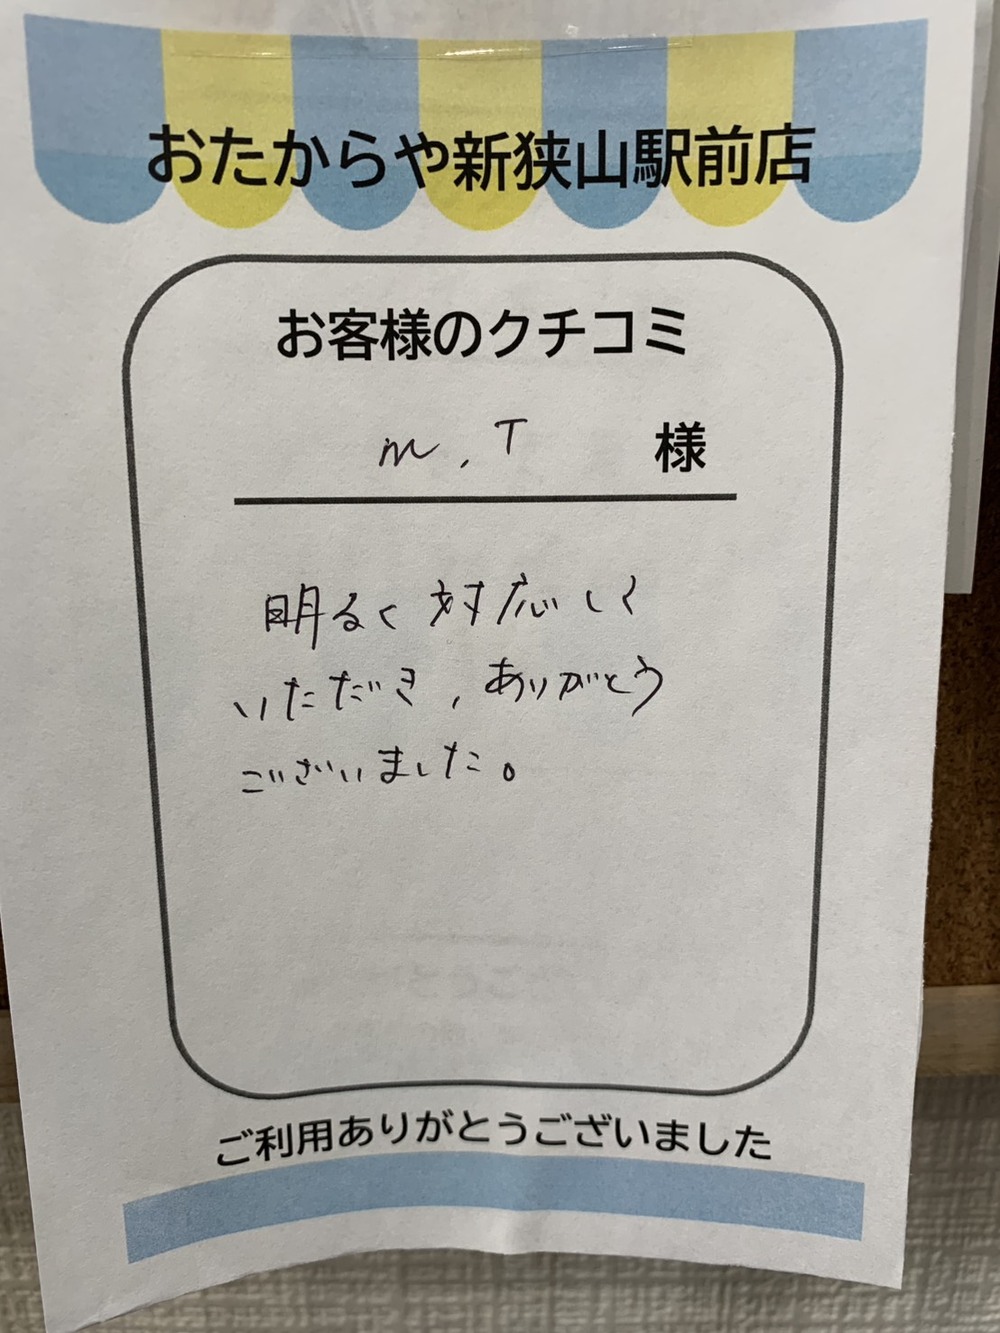 おたからや新狭山駅前店
お客様のクチコミ
m.T 様
明るく対応しく
いただき、ありがとう
ございました。
ご利用ありがとうございました